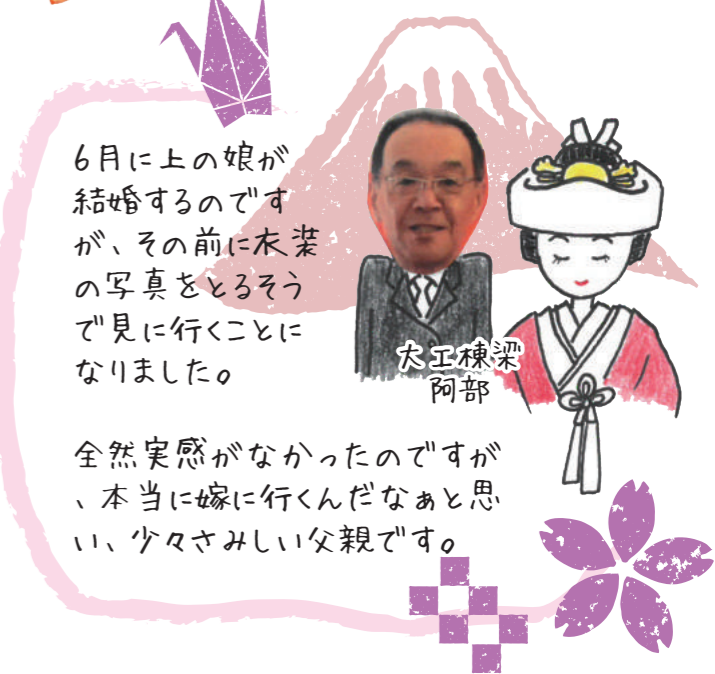 6月に上の娘が
結婚するのです
が、その前に衣装
の写真をとるそう
で見に行くことに
なりました。
全然実感がなかったのですが
、本当に嫁に行くんだなぁと思
い、少々さみしい父親です。
大工棟梁
阿部